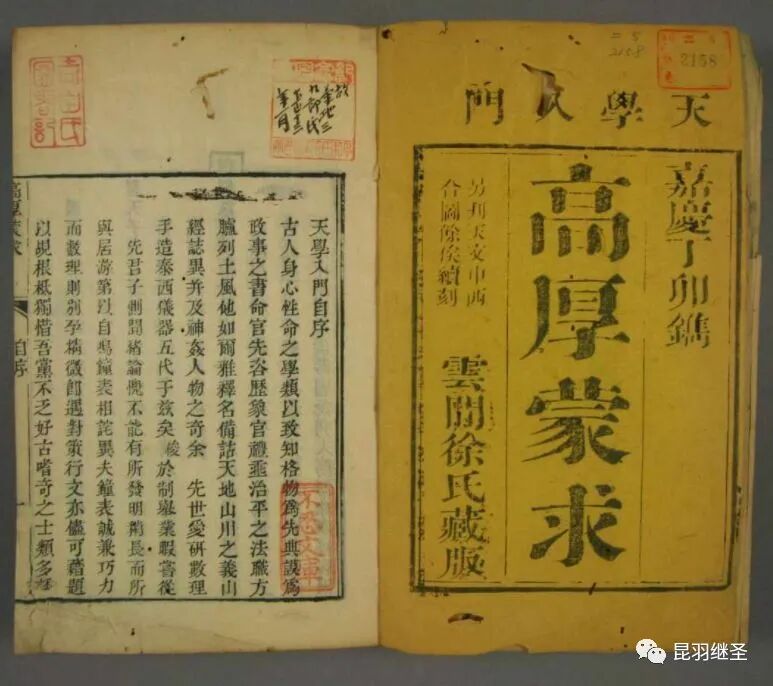 天學入門
嘉慶丁卯鐫
高厚蒙求
另刊天文中西
合圖餘俟續刻
雲間徐氏藏版
2158
2158
天學入門自序
古人身心性命之學類以致知格物爲先典謨爲
政事之書命官先咨歷象官禮亟治平之法職方
臚列土風他如爾雅釋名備詁天地山川之義山
經誌異并及神姦人物之奇余 先世愛研數理
手造泰西儀器五代于茲矣 於制舉業暇嘗從
先君子側聞緒論愧不能有所發明 長而所
與居游第以自鳴鐘表相詫異夫鐘表誠兼巧力
而數理則別孕精微卽遇對策行文亦儘可藉題
以覘根柢獨惜吾黨不乏好古嗜奇之士類多
高厚蒙求
自序
一
不忍文庫
昆羽继圣